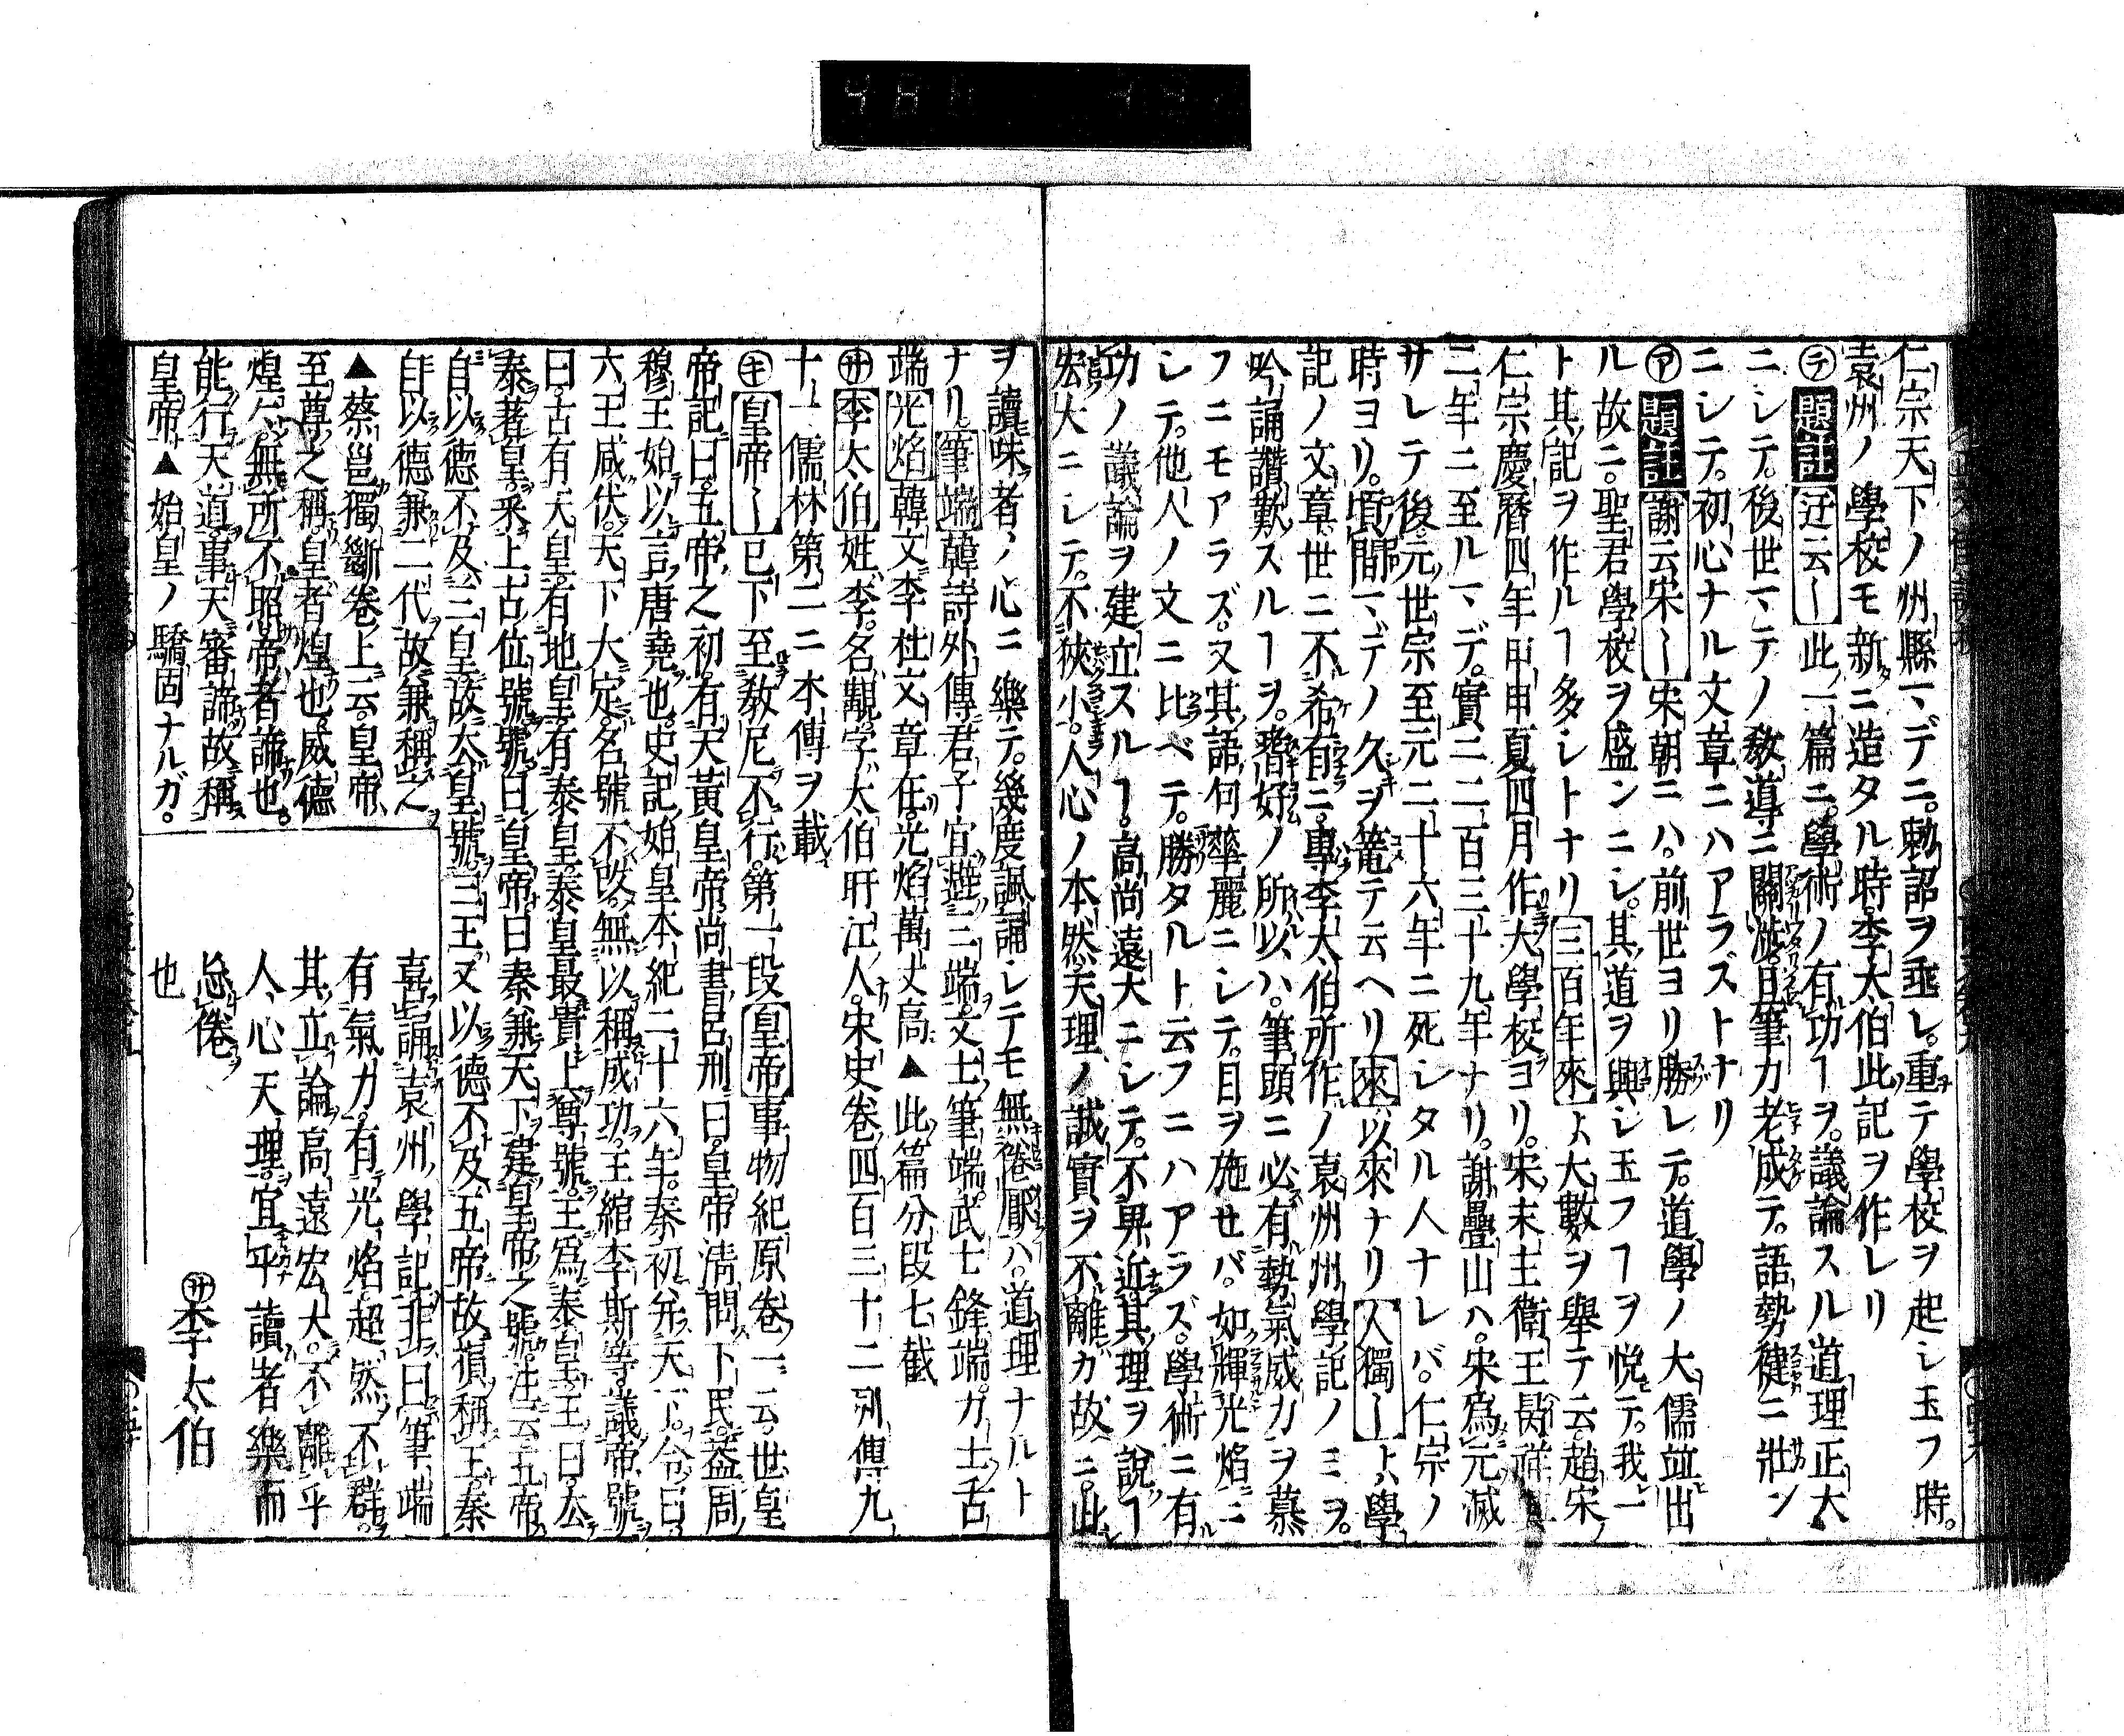 仁宗天下ノ州縣マデニ。勅詔ヲ垂レ。重テ學校ヲ起シ玉フ時。
袁州ノ學校モ新ニ造タル時。李太伯此記ヲ作レリ
㋢題註迂云〡此一篇ニ。學術ノ有功ヿヲ。議論スル道理正大
ニシテ。後世マテノ敎導ニ關渉。且筆力老成テ。語勢健ニ壯ン
ニシテ。初心ナル文章ニハアラズトナリ
㋐題註謝云宋〡宋朝ニハ。前世ヨリ勝レテ。道學ノ大儒竝出
ル故ニ。聖君學校ヲ盛ンニシ。其道ヲ興シ玉フヿヲ悅テ。我一
ト其記ヲ作ルヿ多シトナリ三百年來ト大數ヲ擧テ云。趙宋
仁宗慶曆四年甲申夏四月作大學校ヨリ。宋末主衛王昺祥
二年ニ至ルマデ。實二二百三十九年ナリ。謝疊山ハ。宋爲元滅
サレテ後。元世宗至元二十六年ニ死シタル人ナレバ。仁宗ノ
時ヨリ。頃間マデノ久ヲ篭テ云ヘリ來以來ナリ人獨〡ト學
記ノ文章。世ニ不希有ニ。專李太伯所作ノ袁州州學記ノミヲ。
吟誦讚歎スルヿヲ。嗜好ノ所以ハ。筆頭ニ必有勢氣威力ヲ慕
フニモアラズ。又其語何華麗ニシテ。目ヲ施セバ。如輝光焰ニ
シテ。他人ノ文ニ比ベテ。勝タルト云フニハアラズ。學術ニ有
功ノ議論ヲ建立スルヿ。高尚遠大ニシテ。不卑近其理ヲ說ヿ
宏大ニシテ。不狹小。人心ノ本然天理ノ誠實ヲ不離カ故ニ。此
ヲ讀味者ノ心ニ樂テ。幾度諷誦シテモ無倦厭ハ。道理ナルト
ナリ筆端韓詩外傳君子宜避三端。文士筆端。武士鋒端。カ士舌
端光焰韓文李杜文章在。光焰萬丈高▲此篇分段七截
㋚李太伯姓李。名覯字太伯盱江人。宋史卷四百三十二列傳九
十一儒林第二ニ本傳ヲ載
㋖皇帝〡已下至敎尼不行。第一段皇帝事物紀原卷一云。世皇
帝記曰。五帝之初。有天黃皇帝尚書呂刑曰。皇帝淸問下民。蓋周
穆王始以言唐堯也。史記始皇本紀二十六年。秦初幷天下。令曰。
六王咸伏。天下大定。名號不改。無以稱成功。王綰李斯等議帝號
曰。古有天皇。有地皇有泰皇。泰皇最貴上尊號。王爲泰皇。王曰。去
泰著皇。采上古位號。號曰皇帝曰秦兼天下。建皇帝之號。注云五帝
自以德不及三皇。故去皇號。三王又以德不及五帝故損稱王。秦
自以德兼二代故兼稱之
▲蔡邕獨斷卷上云。皇帝
至尊之稱。皇者煌也。威德
煌煌。無所不照帝者諦也。
能行天道。事天審諦故稱
皇帝▲始皇ノ驕固ナルガ。
喜誦袁州學記。非曰筆端
有氣力。有光焰。超然不群。
其立論高遠宏大。不離乎
人心天理。宜乎讀者樂而
忘倦　㋚李太伯
也